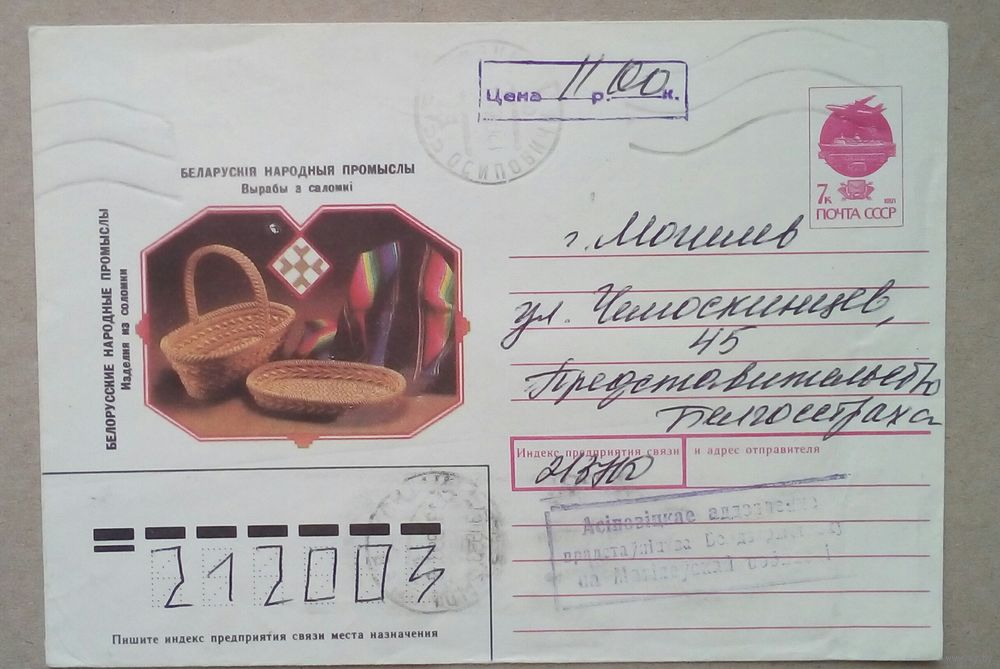 Цена 11 р. 00 к.
ОСИПОВИЧ
7к
ПОЧТА СССР
БЕЛАРУСКІЯ НАРОДНЫЯ ПРОМЫСЛЫ
Вырабы з саломкі
БЕЛОРУССКИЕ НАРОДНЫЕ ПРОМЫСЛЫ
Изделия из соломки
г. Могилев
ул. Челюскинцев,
45
Представительство
Белгосстраха
Индекс предприятия связи и адрес отправителя
Асіповіцкае аддзяленне
прадстаўніцтва
па Магілёўскай вобласці
212003
Пишите индекс предприятия связи места назначения